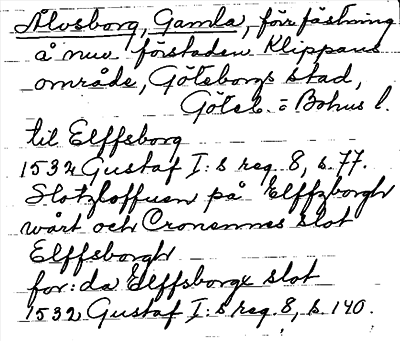 Älvsborg, Gamla, förr fästning
å nuv förstaden Klippans
område, Göteborgs stad,
Göteb. o Bohus l.
til Elffsborg
1532 Gustaf I:s reg. 8, s. 77.
Slotzloffuen på Elffzborgh
wårt och Cronennes slot
Elffsborgh
for:da Elffsborgx slot
1532 Gustaf I:s reg. 8, s. 140.